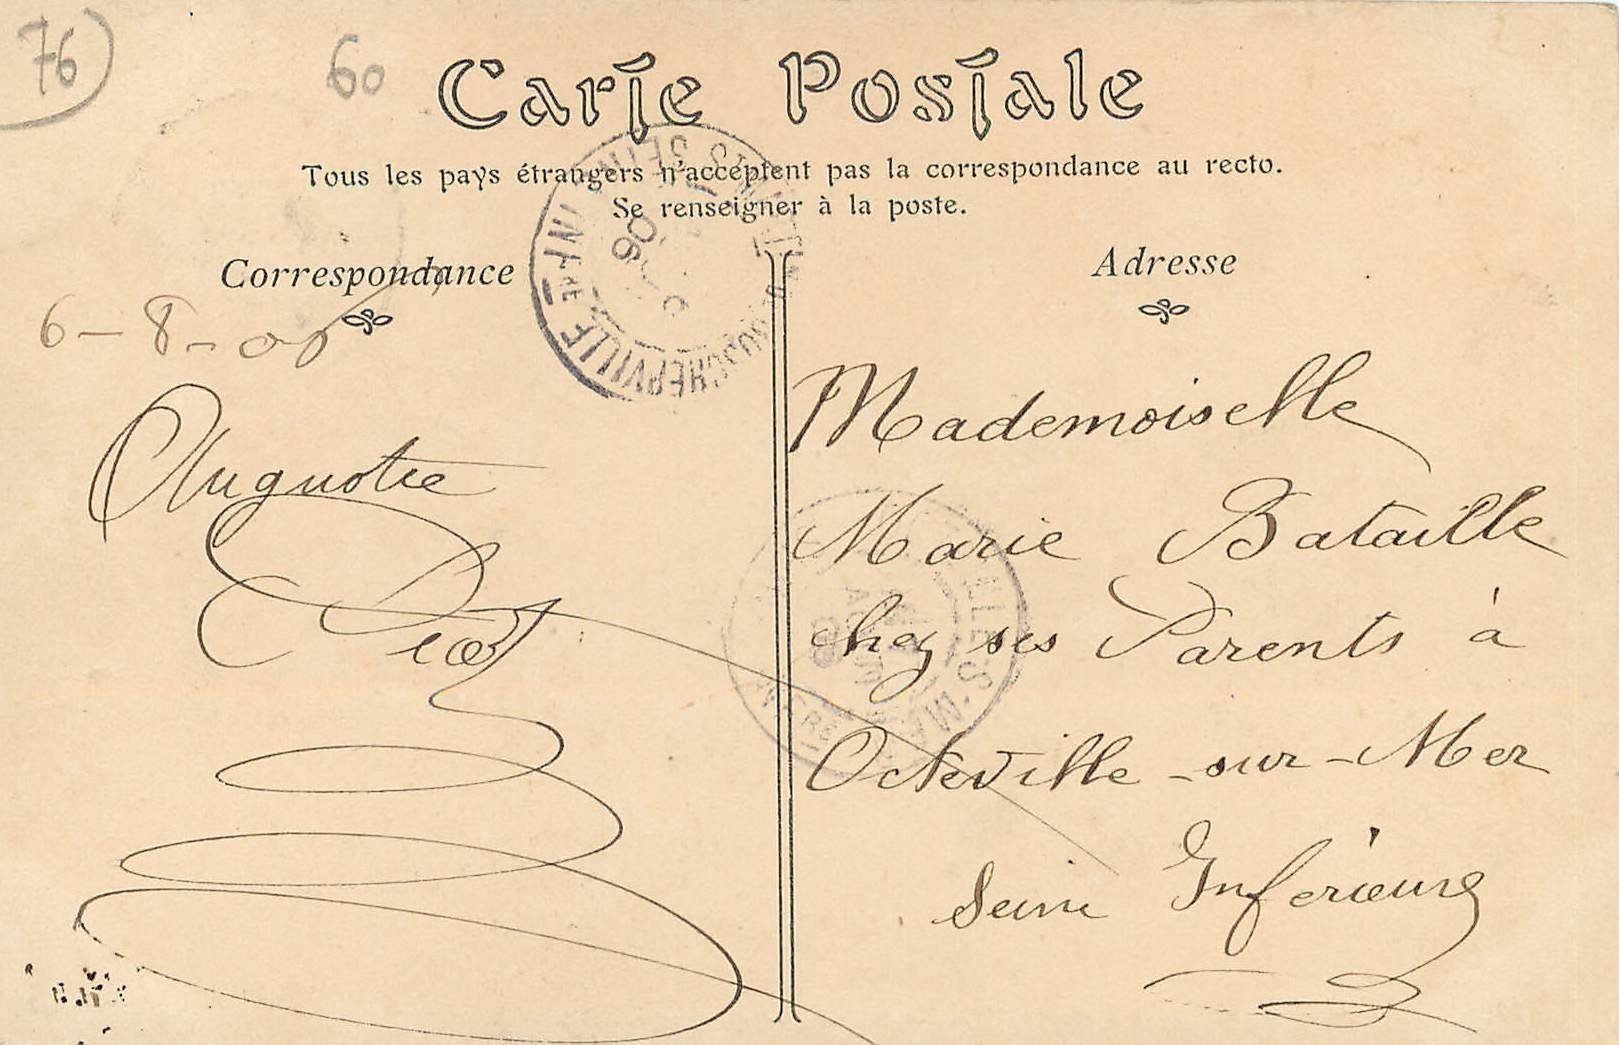 76
60
Carte Postale
Tous les pays étrangers n'acceptent pas la correspondance au recto.
Se renseigner à la poste.
Correspondance
Adresse
6-8-06
Mademoiselle
Marie Bataille
chez ses Parents à
Octeville-sur-Mer
Seine Inférieure
Augustie